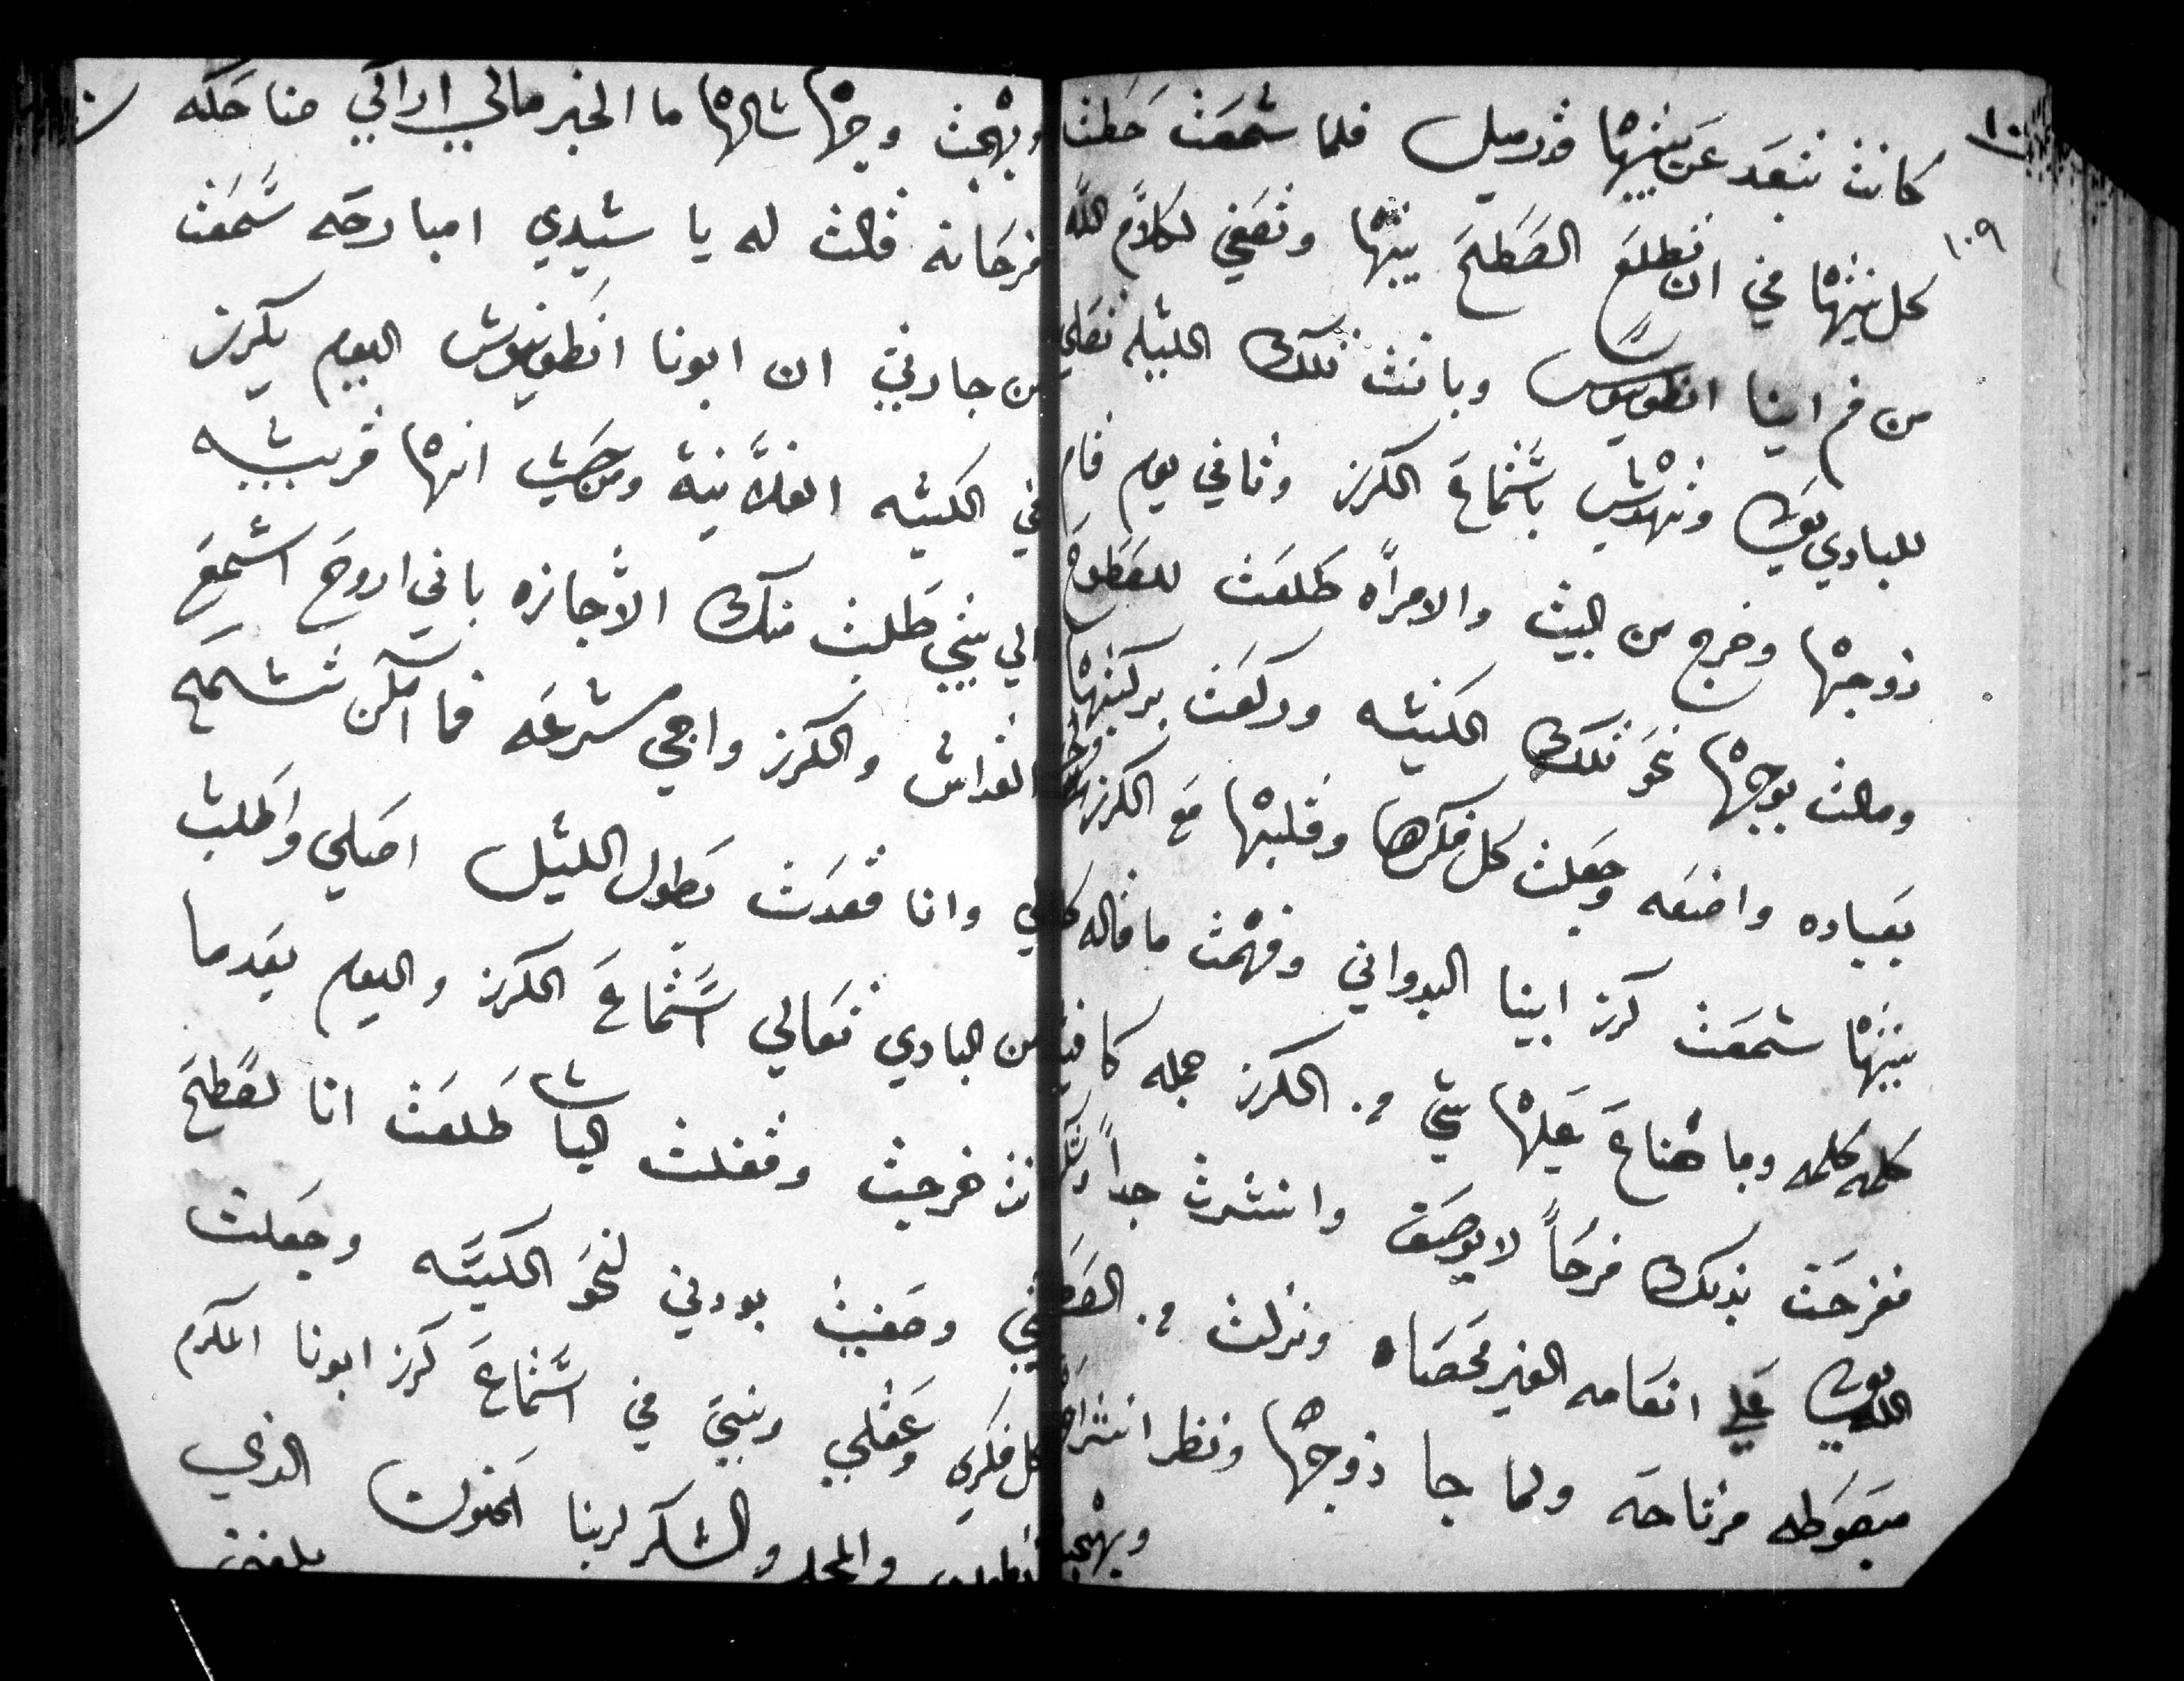 ١٠٩
كانت تبعد عن بيتها قدر ميل فلما سمعت حطت
كل نيتها في ان تطلع الصطح بيتها وتصغي لكلام الله
من فم ابينا انطونيوس وباتت تلك الليله تصلي
للباري وتهدس باستماع الكرز وثاني يوم قام
زوجها وخرج من البيت والامراه طلعت للصطوح
ومالت بوجهها نحو تلك الكنيسه وركعت بركبتها
بعباده واضعه وجعلت كل فكرها وقلبها مع الكرز
بيتها سمعت كرز ابينا البدواني وفهمت ما قاله
كلمه كلمه وما ضاع عليها شي من الكرز جمله كافيه
ففرحت بذلك فرحاً لا يوصف وانسرت جداً
الله على انعامه الغير محصاه ونزلت من الصطح
مبصوطه مرتاحه ولما جا زوجها ونظر انشراح
وبهجت
وبهجت وجهها سالها ما الخبر مالي اراكي ضاحكه
فرحانه قالت له يا سيدي امبارحه سمعت
من جارتي ان ابونا انطونيوس اليوم يكرز
في الكنيسه الفلانية ومن حيث انها قريبه
الي بيتي طلبت منك الاجازه باني اروح اسمع
القداس والكرز واجي سرعه فما امكن تسمح
لي وانا قعدت بطول الليل اصلي واطلب
من الباري تعالي استماع الكرز واليوم بعدما
انت خرجت وقفلت الباب طلعت انا لصطح
بيتي وصغيت بودني لنحو الكنيسه وجعلت
كل فكري وعقلي ونيتي في استماع كرز ابونا المكرم
والمجد والشكر لربنا الحنون الذي